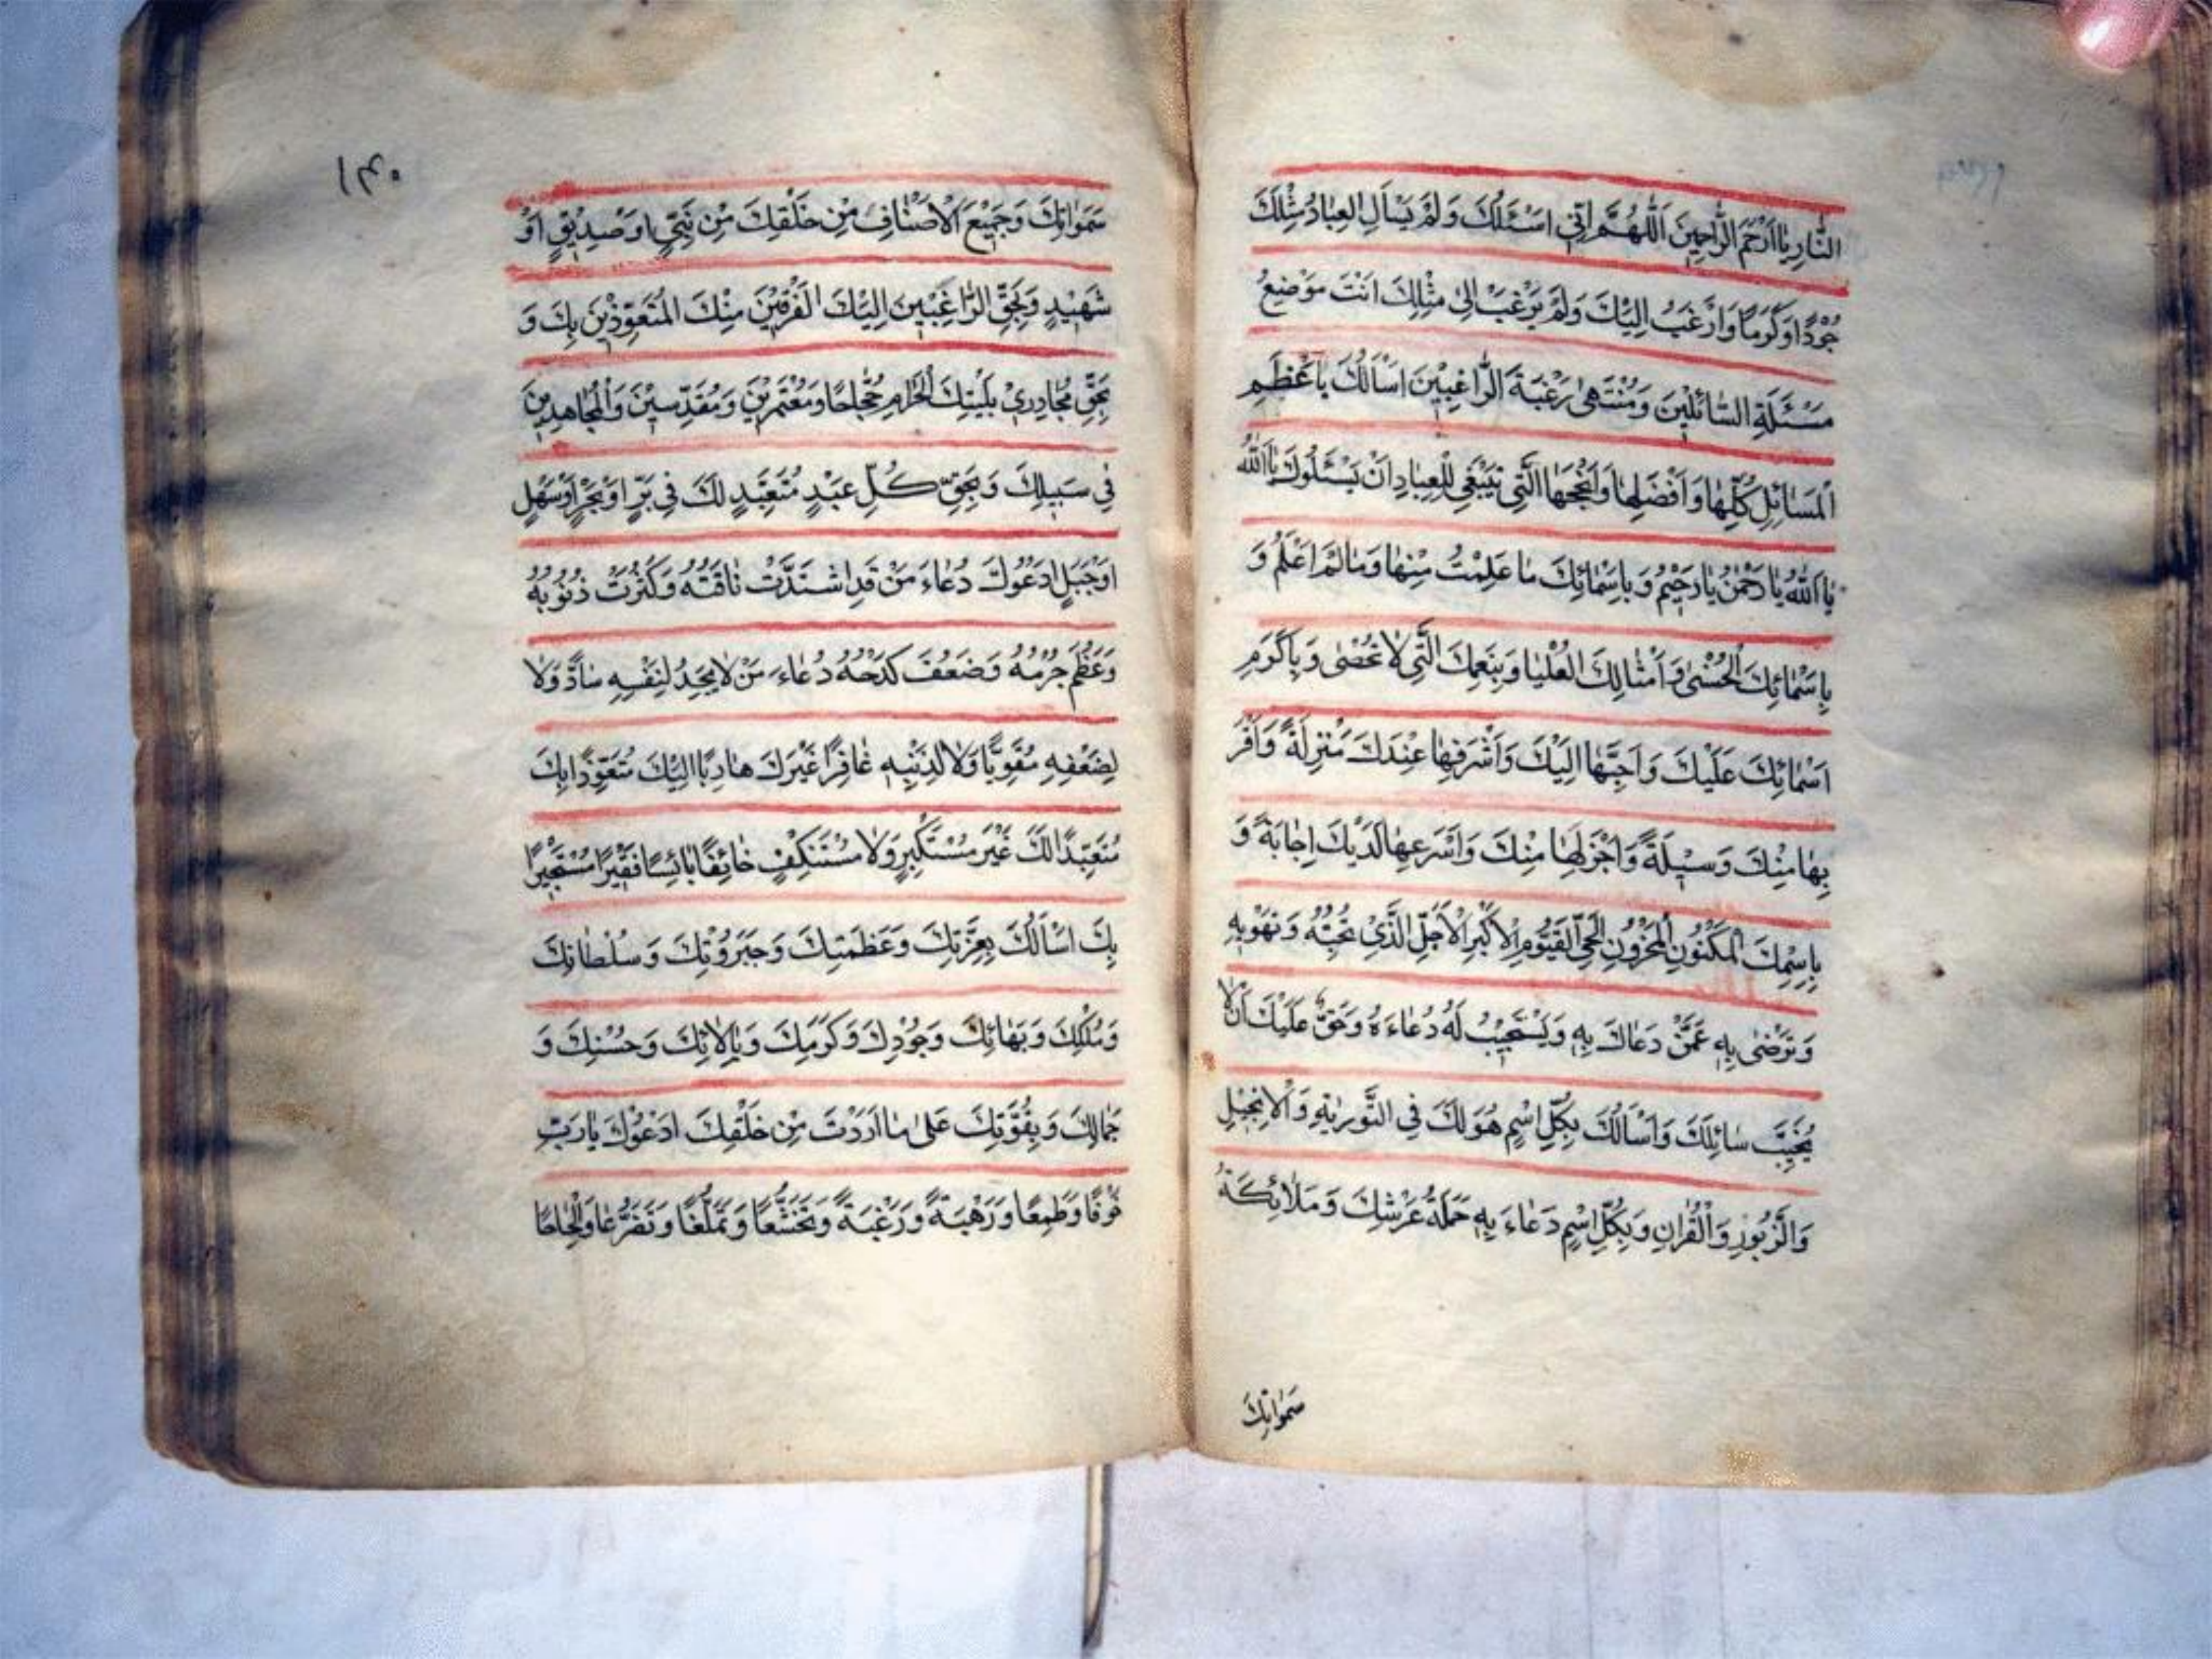 النَّارِ يَا اَرْحَمَ الرَّاحِمِيْنَ اَللّٰهُمَّ اِنِّي اَسْئَلُكَ وَلَمْ يَسْاَلِ الْعِبَادُ مِثْلَكَ
جُوْدًا وَكَرَمًا وَاَرْغَبُ اِلَيْكَ وَلَمْ يَرْغَبْ اِلىٰ مِثْلِكَ اَنْتَ مَوْضِعُ
مَسْئَلَةِ السَّائِلِيْنَ وَمُنْتَهىٰ رَغْبَةِ الرَّاغِبِيْنَ اَسْاَلُكَ بِاَعْظَمِ
الْمَسَائِلِ كُلِّهَا وَاَفْضَلِهَا وَاَنْجَحِهَا الَّتِي يَنْبَغِي لِلْعِبَادِ اَنْ يَسْئَلُوكَ يَا اَللّٰهُ
يَا اَللّٰهُ يَا رَحْمٰنُ يَا رَحِيْمُ وَبِاَسْمَائِكَ مَا عَلِمْتُ مِنْهَا وَمَا لَمْ اَعْلَمْ وَ
بِاَسْمَائِكَ الْحُسْنىٰ وَاَمْثَالِكَ الْعُلْيَا وَبِنِعَمِكَ الَّتِي لَا تُحْصىٰ وَبِاَكْرَمِ
اَسْمَائِكَ عَلَيْكَ وَاَحَبِّهَا اِلَيْكَ وَاَشْرَفِهَا عِنْدَكَ مَنْزِلَةً وَاَقْرَ
بِهَا مِنْكَ وَسِيْلَةً وَاَجْزَلِهَا مِنْكَ وَاَسْرَعِهَا لَدَيْكَ اِجَابَةً وَ
بِاسْمِكَ الْمَكْنُوْنِ الْمَخْزُوْنِ الْحَيِّ الْقَيُّوْمِ الْاَكْبَرِ الْاَجَلِّ الَّذِيْ تُحِبُّهُ وَتَهْوٰيهِ
وَتَرْضىٰ بِهٖ عَمَّنْ دَعَاكَ بِهٖ وَيَسْتَجِيْبُ لَهُ دُعَاءَهُ وَحَقٌّ عَلَيْكَ اَنْ لَا
يُخَيِّبَ سَائِلَكَ وَاَسْاَلُكَ بِكُلِّ اسْمٍ هُوَ لَكَ فِي التَّوْرٰيةِ وَالْاِنْجِيْلِ
وَالزَّبُوْرِ وَالْقُرْاٰنِ وَبِكُلِّ اسْمٍ دَعَاءَ بِهٖ حَمَلَةُ عَرْشِكَ وَمَلَائِكَةُ
سَمَوَاتِكَ
١٤٠
سَمَوَاتِكَ وَجَمِيْعَ الْاَصْنَافِ مِنْ خَلْقِكَ مِنْ نَبِيٍّ اَوْ صِدِّيْقٍ اَوْ
شَهِيْدٍ وَبِحَقِّ الرَّاغِبِيْنَ اِلَيْكَ الْفَرِقِيْنَ مِنْكَ الْمُتَعَوِّذِيْنَ بِكَ وَ
بِحَقِّ مُجَاوِرِيْ بَيْتِكَ الْحَرَامِ حُجَّاجًا وَمُعْتَمِرِيْنَ وَمُقَدِّسِيْنَ وَالْمُجَاهِدِيْنَ
فِي سَبِيلِكَ وَبِحَقِّ كُلِّ عَبْدٍ مُتَعَبِّدٍ لَكَ فِي بَرٍّ اَوْ بَحْرٍ اَوْ سَهْلٍ
اَوْ جَبَلٍ اَدْعُوْكَ دُعَاءَ مَنْ قَدِ اشْتَدَّتْ فَاقَتُهُ وَكَثُرَتْ ذُنُوْبُهُ
وَعَظُمَ جُرْمُهُ وَضَعُفَ كَدْحُهُ دُعَاءَ مَنْ لَا يَجِدُ لِنَفْسِهِ سَادًّا وَلَا
لِضَعْفِهِ مُقَوِّيًا وَلَا لِذَنْبِهِ غَافِرًا غَيْرَكَ هَارِبًا اِلَيْكَ مُتَعَوِّذًا بِكَ
مُتَعَبِّدًا لَكَ غَيْرَ مُسْتَكْبِرٍ وَلَا مُسْتَنْكِفٍ خَائِفًا بَائِسًا فَقِيْرًا مُسْتَجِيْرًا
بِكَ اَسْاَلُكَ بِعِزَّتِكَ وَعَظَمَتِكَ وَجَبَرُوْتِكَ وَسُلْطَانِكَ
وَمُلْكِكَ وَبَهَائِكَ وَجُوْدِكَ وَكَرَمِكَ وَبِاٰلَائِكَ وَحُسْنِكَ وَ
جَمَالِكَ وَبِقُوَّتِكَ عَلىٰ مَا اَرَدْتَ مِنْ خَلْقِكَ اَدْعُوْكَ يَا رَبِّ
خَوْفًا وَطَمَعًا وَرَهْبَةً وَرَغْبَةً وَتَخَشُّعًا وَتَمَلُّقًا وَتَضَرُّعًا وَاِلْحَاحًا